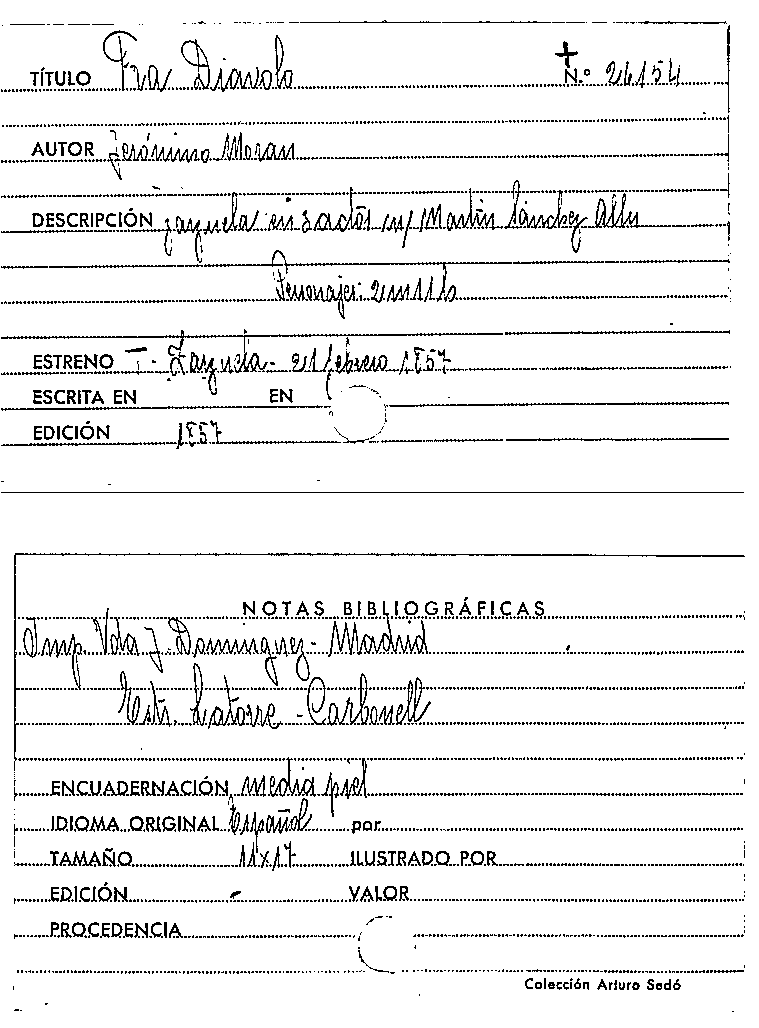 TÍTULO Fra Diavolo + N.º 24154
AUTOR Jerónimo Moran
DESCRIPCIÓN zarzuela en 3 actos m/ Martin Sánchez Allu
Personajes: 2m 11 h
ESTRENO T - Zarzuela - 21 febrero 1857
ESCRITA EN EN
EDICIÓN 1857
NOTAS BIBLIOGRÁFICAS
Imp. Vda J. Dominguez - Madrid
Estr. Latorre - Carbonell
ENCUADERNACIÓN media piel
IDIOMA ORIGINAL Español por
TAMAÑO 11x17 ILUSTRADO POR
EDICIÓN - VALOR
PROCEDENCIA
Colección Arturo Sedó